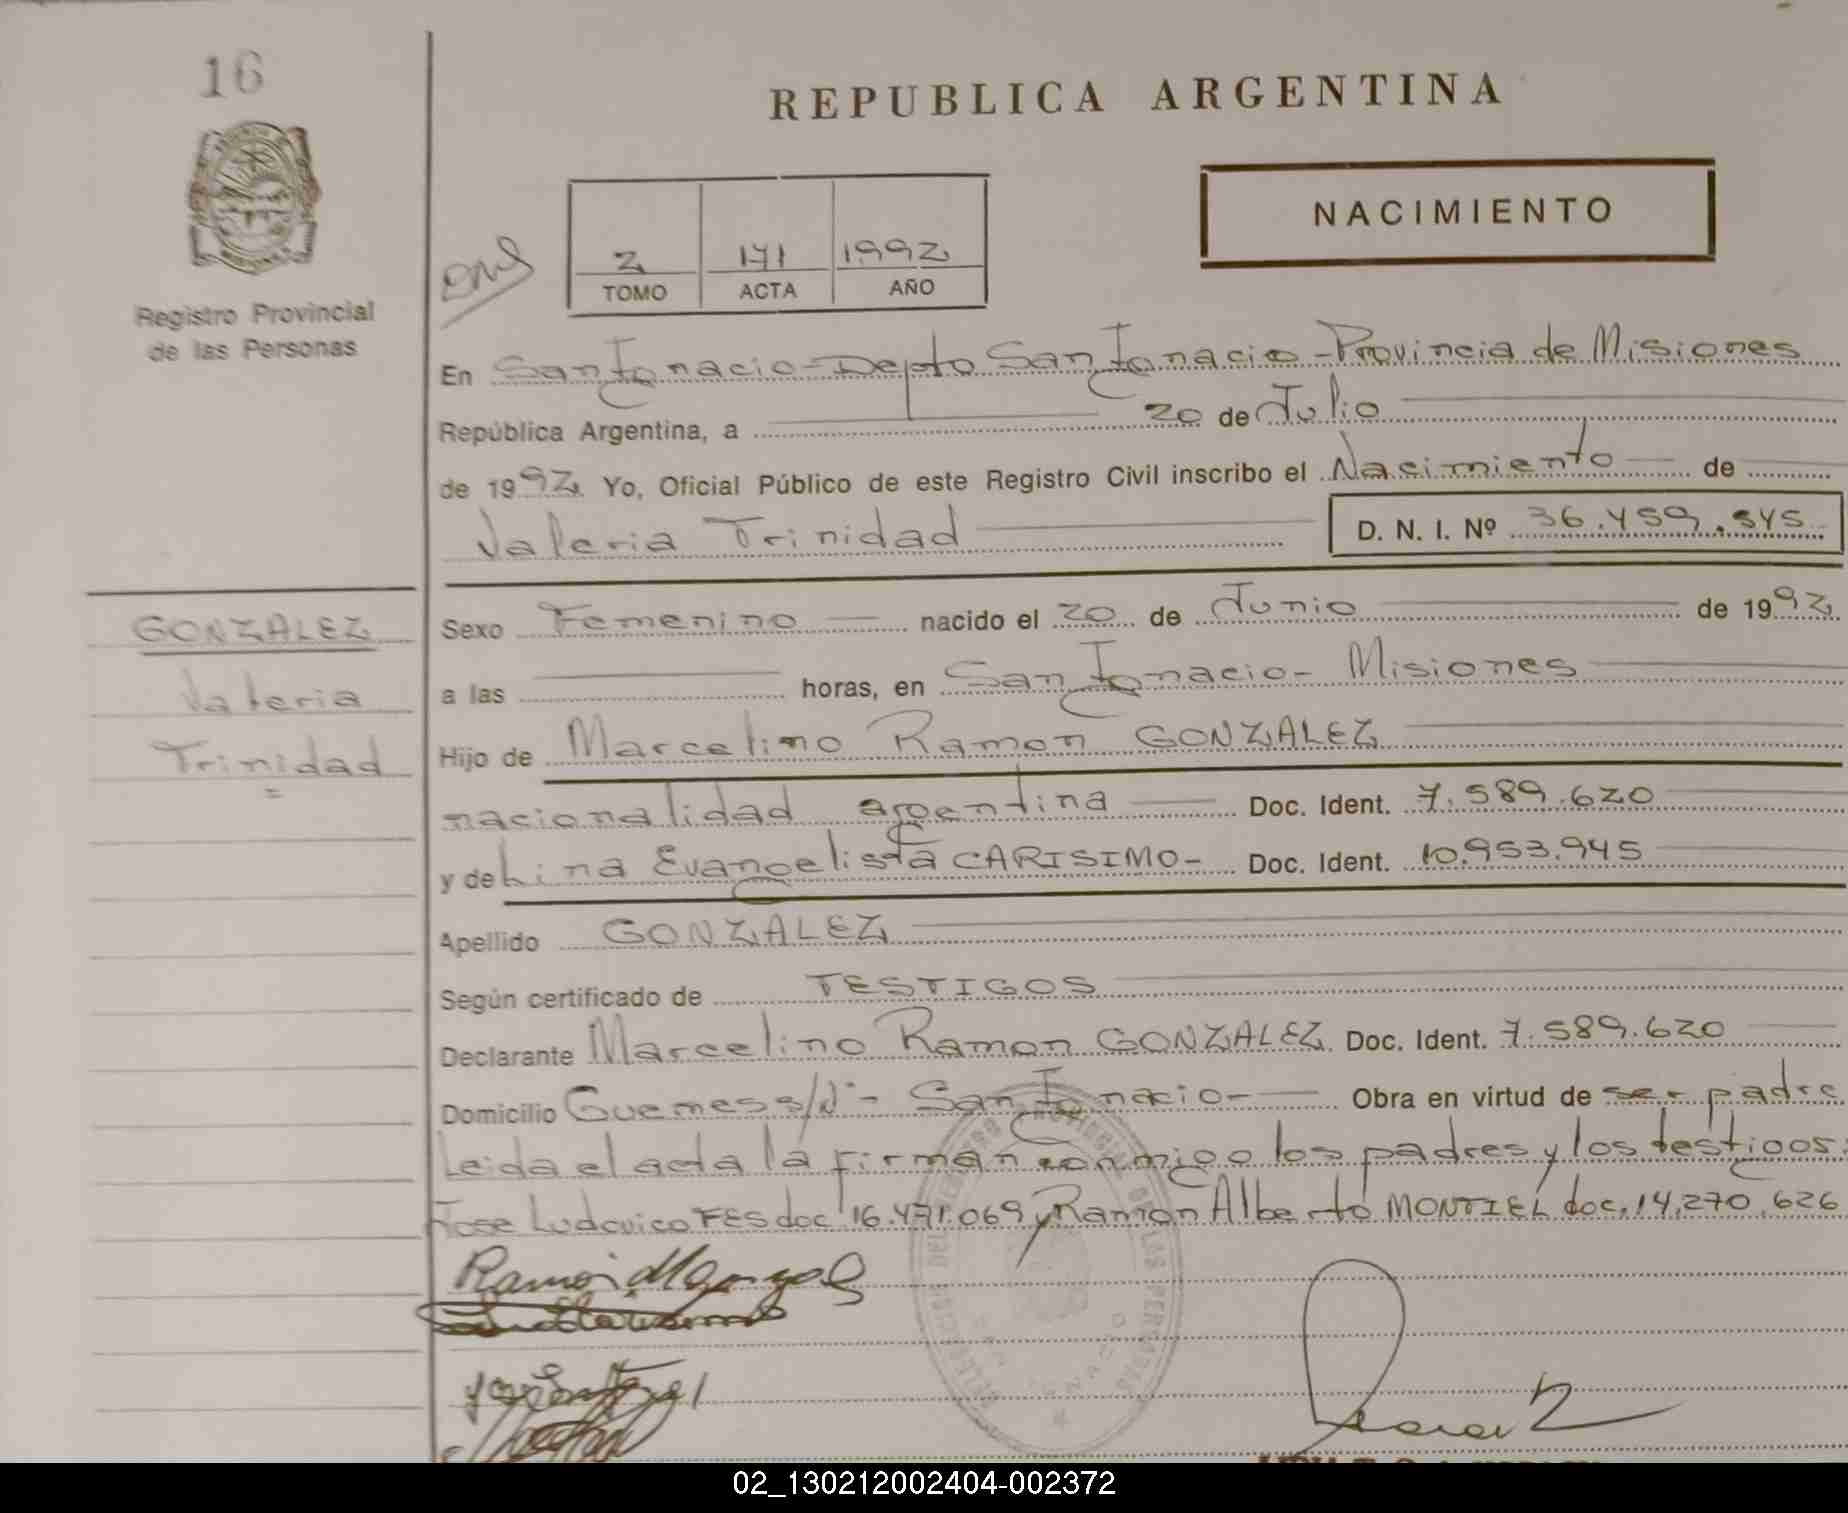 16
REPUBLICA ARGENTINA
NACIMIENTO
2 171 1992
TOMO ACTA AÑO
Registro Provincial
de las Personas
En San Ignacio - Depto San Ignacio - Provincia de Misiones
República Argentina, a 20 de Julio
de 1992 Yo, Oficial Público de este Registro Civil inscribo el Nacimiento de
Valeria Trinidad D. N. I. Nº 36.459.545
GONZALEZ
Valeria
Trinidad
Sexo Femenino nacido el 20 de Junio de 1992
a las horas, en San Ignacio - Misiones
Hijo de Marcelino Ramon GONZALEZ
nacionalidad argentina Doc. Ident. 7.589.620
y de Lina Evangelista CARISIMO - Doc. Ident. 10.953.945
Apellido GONZALEZ
Según certificado de TESTIGOS
Declarante Marcelino Ramon GONZALEZ Doc. Ident. 7.589.620
Domicilio Guemes s/Nº - San Ignacio - Obra en virtud de ser padre
Leida el acta la firman conmigo los padres y los testigos:
Jose Ludovico FES doc 16.471.069 y Ramon Alberto MONTIEL doc. 14.270.626
02_130212002404-002372